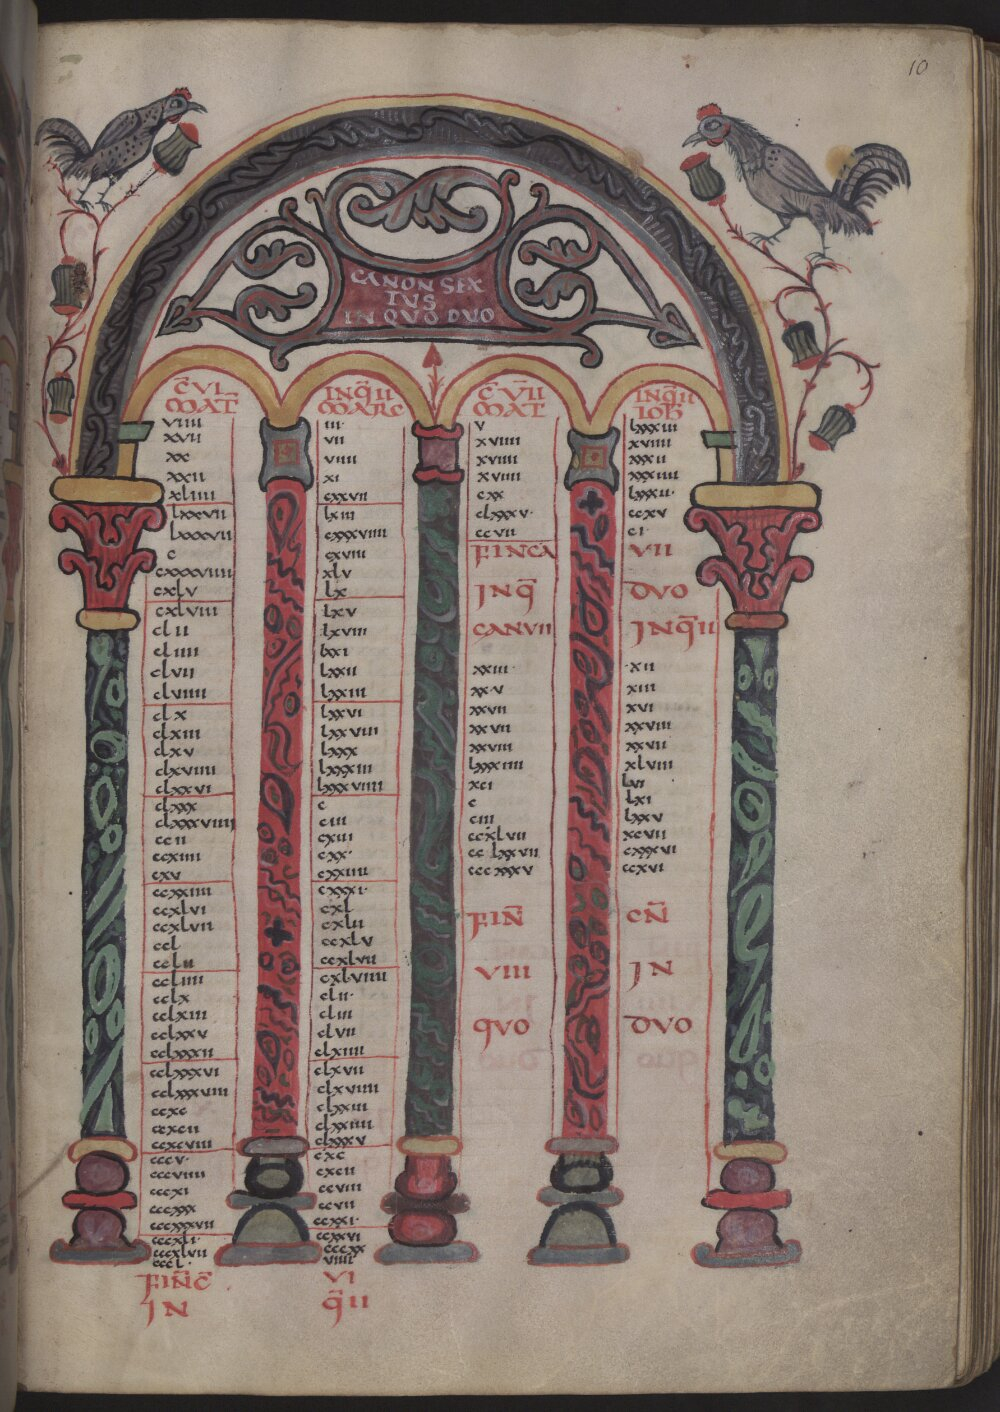 10
CANON SEX
TUS
IN QUO DUO
C̄ VI
MAT̄
VIIII
XVII
XX
XXII
XLIIII
LXXXVII
LXXXXVII
C
CXXXVIIII
CXLV
CXLVIII
CLII
CLIIII
CLVII
CLVIIII
CLX
CLXIII
CLXV
CLXVIIII
CLXXVI
CLXXX
CLXXXVIIII
CCII
CCXIIII
CXV
CCXXIIII
CCXLVI
CCXLVII
CCL
CCLII
CCLIIII
CCLX
CCLXIII
CCLXXV
CCLXXXII
CCLXXXVI
CCLXXXVIII
CCXC
CCXCII
CCXCVIII
CCCV
CCCVIIII
CCCXI
CCCXXX
CCCXXXVII
CCCXLI
CCCXLVII
CCCL
FIN̄ C̄
IN
INQ̄ II
MARC
III
VII
VIIII
XI
CXXVII
LXIII
CXXXVIIII
CXVIII
XLV
LX
LXV
LXVIII
LXXI
LXXII
LXXIII
LXXVI
LXXVIII
LXXX
LXXXIII
LXXXVIIII
C
CIII
CXIII
CXX
CXXIIII
CXXXI
CXL
CXLII
CCXLV
CCXLVII
CXLVIIII
CLII
CLIII
CLVII
CLXIIII
CLXVII
CLXVIIII
CLXXIII
CLXXIIII
CLXXXV
CXC
CXCII
CCVIII
CCVII
CCXXI
CCXXVI
CCCXX
VIIII
VI
Q̄ II
C̄ VII
MAT
V
XVIIII
XVIIII
XVIIII
CXX
CLXXXV
CCVII
FINCA
INQ̄
CANVII
XXIII
XXV
XXVII
XXVII
XXVIII
LXXXIIII
XCI
C
CIII
CCXLVII
CCLXXVII
CCCCXXXV
FIN̄
VIII
QUO
INQ̄ II
IOH
LXXXIII
XVIIII
XXXII
XXXIIII
LXXXII
CCXV
CI
VII
DUO
INQ̄ II
XII
XIII
XVI
XXVIII
XXVII
XLVIII
LVI
LXI
LXXXV
XCVII
CXXXVI
CCXVI
CN̄
IN
DUO